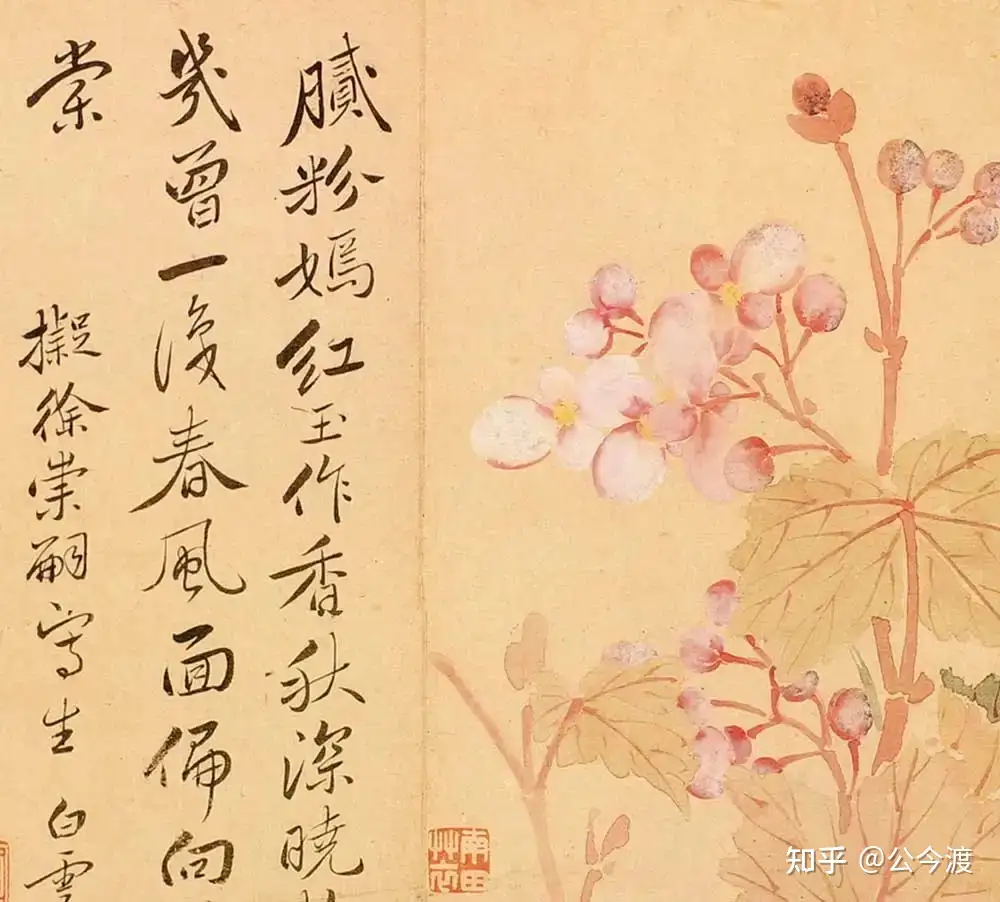 膩粉嫣红玉作香秋深曉
幾曾一春風面偏向
棠
擬徐崇嗣寫生 白雲
南田
知乎 @公今渡